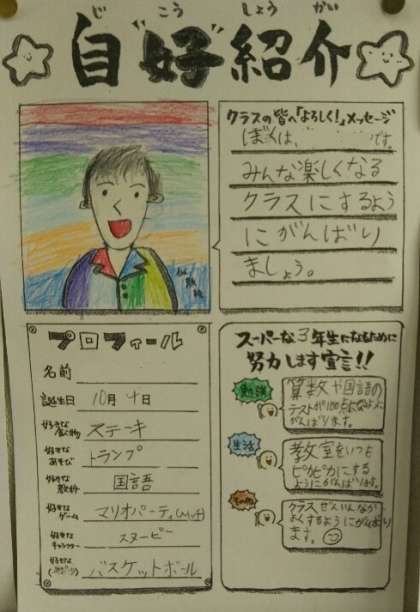 じ こう しょう かい
自"好"紹介
クラスの皆へ「よろしく!」メッセージ
ぼくは、 です。
みんな楽しくなる
クラスにするよう
にがんばり
ましょう。
プロフィール
名前
誕生日 10月4日
好きな食べ物 ステーキ
好きなあそび トランプ
好きな教科 国語
好きなゲーム マリオパーティ
好きなキャラクター スヌーピー
好きな バスケットボール
スーパーな3年生になるために
努力します宣言!!
勉強
算数や国語の
テストが100点になるように
がんばります。
生活
教室をいつも
ピカピカにする
ようにがんばります。
その他
クラスぜんいんなか
よくするようにがんばり
ます。